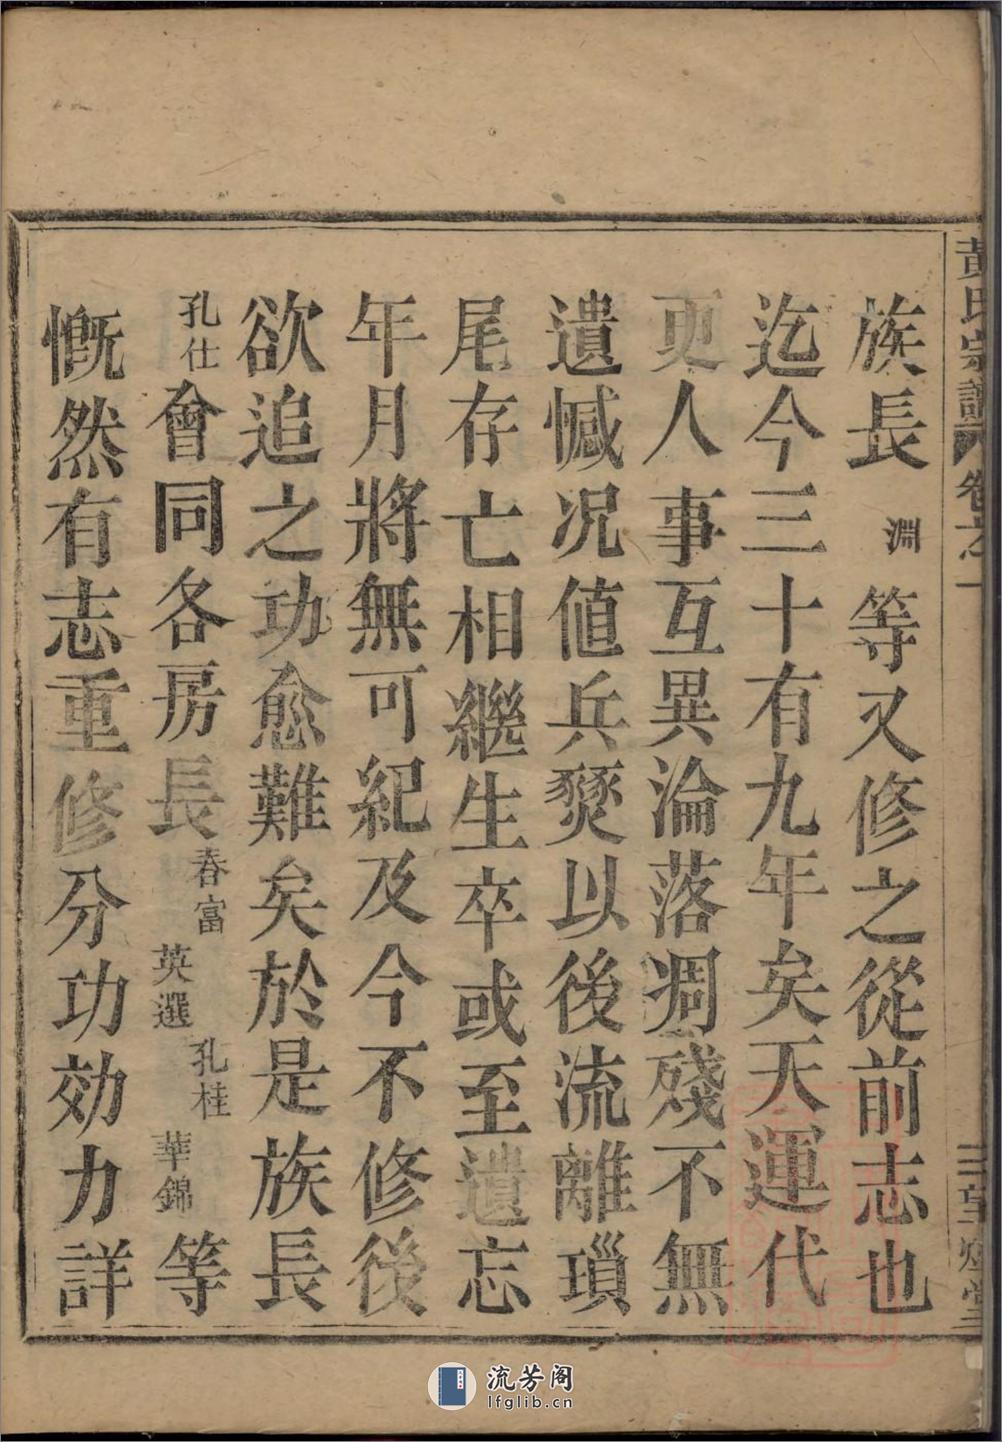 黃氏宗譜 卷之一
族長淵等又修之從前志也
迄今三十有九年矣天運代
更人事互異淪落凋殘不無
遺憾况値兵燹以後流離瑣
尾存亡相繼生卒或至遺忘
年月將無可紀及今不修後
欲追之功愈難矣於是族長
孔仕會同各房長春富英選孔桂華錦等
慨然有志重修分功効力詳
流芳阁
lfglib.cn